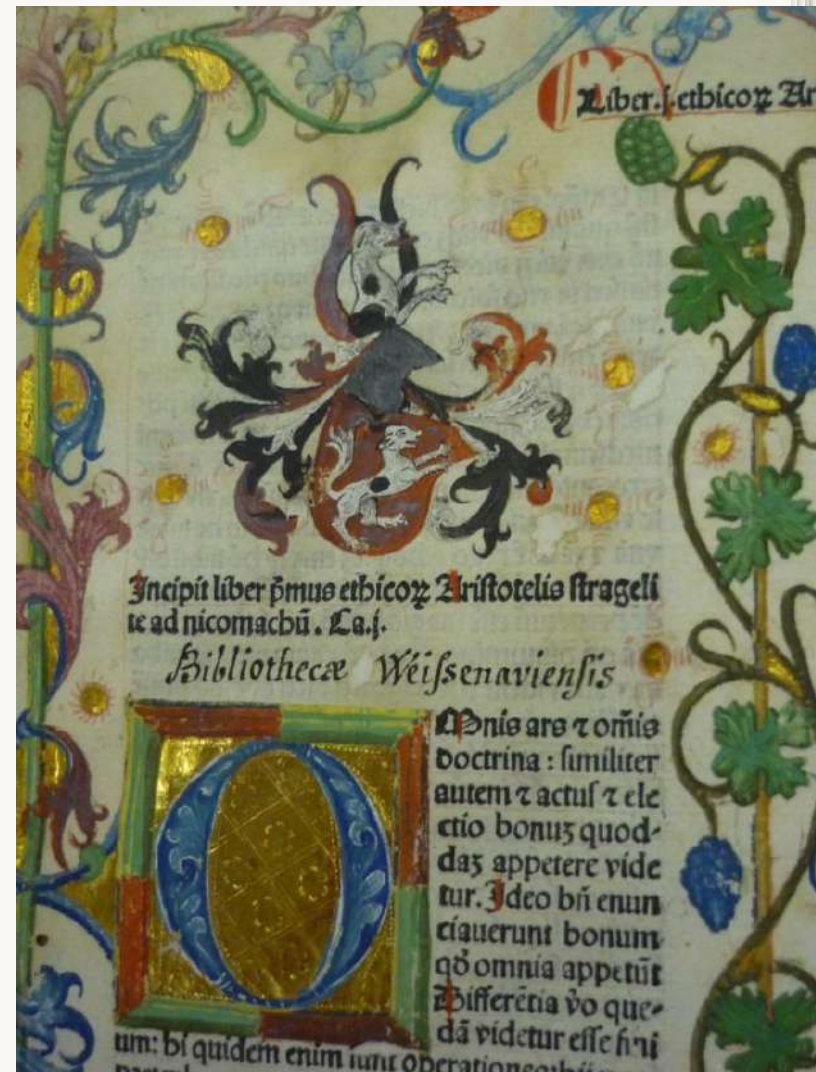 Liber .j. ethicoꝝ Ar
Incipit liber p̄mus ethicoꝝ Aristotelis strageli
te ad nicomachū. Ca.j.
Bibliothecæ Weiſsenavienſis
OMnis ars ⁊ om̄is
doctrina : similiter
autem ⁊ actus ⁊ ele
ctio bonuꝫ quod-
daꝫ appetere vide
tur. Ideo bn̄ enun
ciauerunt bonum
qd̄ omnia appetūt
Differētia v̊o que-
dā videtur esse fini
um: hi quidem enim sunt